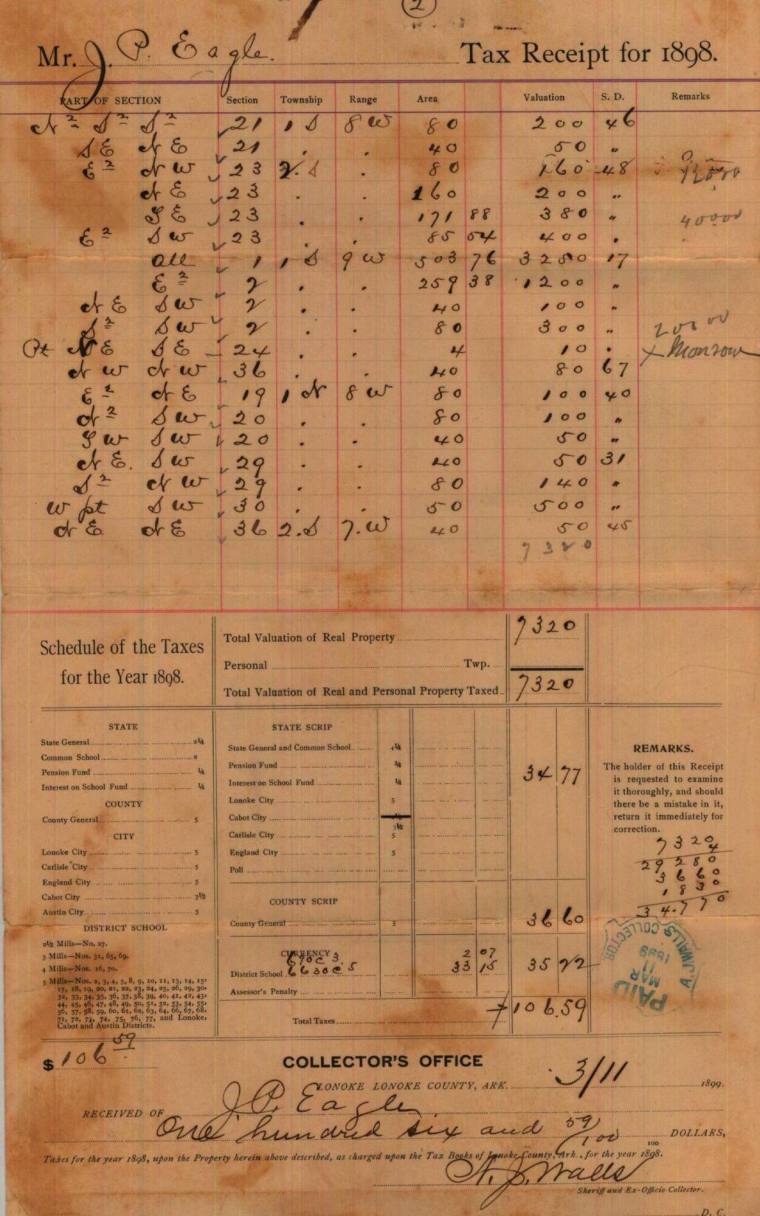 2
Mr. J. P. Eagle. Tax Receipt for 1898.
PART OF SECTION Section Township Range Area Valuation S. D. Remarks
N 2 S 2 S 2 21 1 S 8 W 80 200 46
SE NE 21 . . 40 50 "
E 2 NW 23 2. S . 80 160 48
NE 23 . . 160 200 "
SE 23 . . 171 88 380 " 40000
E 2 SW 23 . . 85 54 400 "
all 1 1 S 9 W 503 76 3250 17
E 2 2 . . 259 38 1200 "
NE SW 2 . . 40 100 "
S 2 SW 2 . . 80 300 " 20000
Pt NE SE 24 . . 4 10 . x Monrow
NW NW 36 . . 40 80 67
E 2 NE 19 1 N 8 W 80 100 40
N 2 SW 20 . . 80 100 "
SW SW 20 . . 40 50 "
NE. SW 29 . . 40 50 31
S 2 NW 29 . . 80 140 "
W pt SW 30 . . 50 500 "
NE NE 36 2. S 7. W 40 50 45
7320
Schedule of the Taxes
for the Year 1898.
Total Valuation of Real Property 7320
Personal Twp.
Total Valuation of Real and Personal Property Taxed 7320
STATE
State General 2¼
Common School 2
Pension Fund ¼
Interest on School Fund ¼
COUNTY
County General 5
CITY
Lonoke City 5
Carlisle City 5
England City 5
Cabot City 7½
Austin City 5
DISTRICT SCHOOL
2½ Mills—No. 27.
3 Mills—Nos. 31, 65, 69.
4 Mills—Nos. 16, 70.
5 Mills—Nos. 2, 3, 4, 5, 8, 9, 10, 11, 13, 14, 15,
17, 18, 19, 20, 21, 22, 23, 24, 25, 26, 29, 30,
32, 33, 34, 35, 36, 37, 38, 39, 40, 41, 42, 43,
44, 45, 46, 47, 48, 49, 50, 51, 52, 53, 54, 55,
56, 57, 58, 59, 60, 61, 62, 63, 64, 66, 67, 68,
71, 72, 73, 74, 75, 76, 77, and Lonoke,
Cabot and Austin Districts.
STATE SCRIP
State General and Common School 4¼
Pension Fund ¼ 34 77
Interest on School Fund ¼
Lonoke City 5
Cabot City 7½
Carlisle City 5
England City 5
Poll
COUNTY SCRIP
County General 5 36 60
CURRENCY
690 @ 3 2 07
District School 6630 @ 5 33 15 35 22
Assessor's Penalty
Total Taxes 106.59
REMARKS.
The holder of this Receipt
is requested to examine
it thoroughly, and should
there be a mistake in it,
return it immediately for
correction.
7320
4
29280
3660
1830
34.770
A. J. WALLS COLLECTOR
PAID
MAR
11
1899
$ 106 59
COLLECTOR'S OFFICE
LONOKE LONOKE COUNTY, ARK. 3/11 1899.
RECEIVED OF J. P. Eagle
One hundred six and 59/100 100 DOLLARS,
Taxes for the year 1898, upon the Property herein above described, as charged upon the Tax Books of Lonoke County, Ark., for the year 1898.
A. J. Walls
Sheriff and Ex-Officio Collector.
D. C.